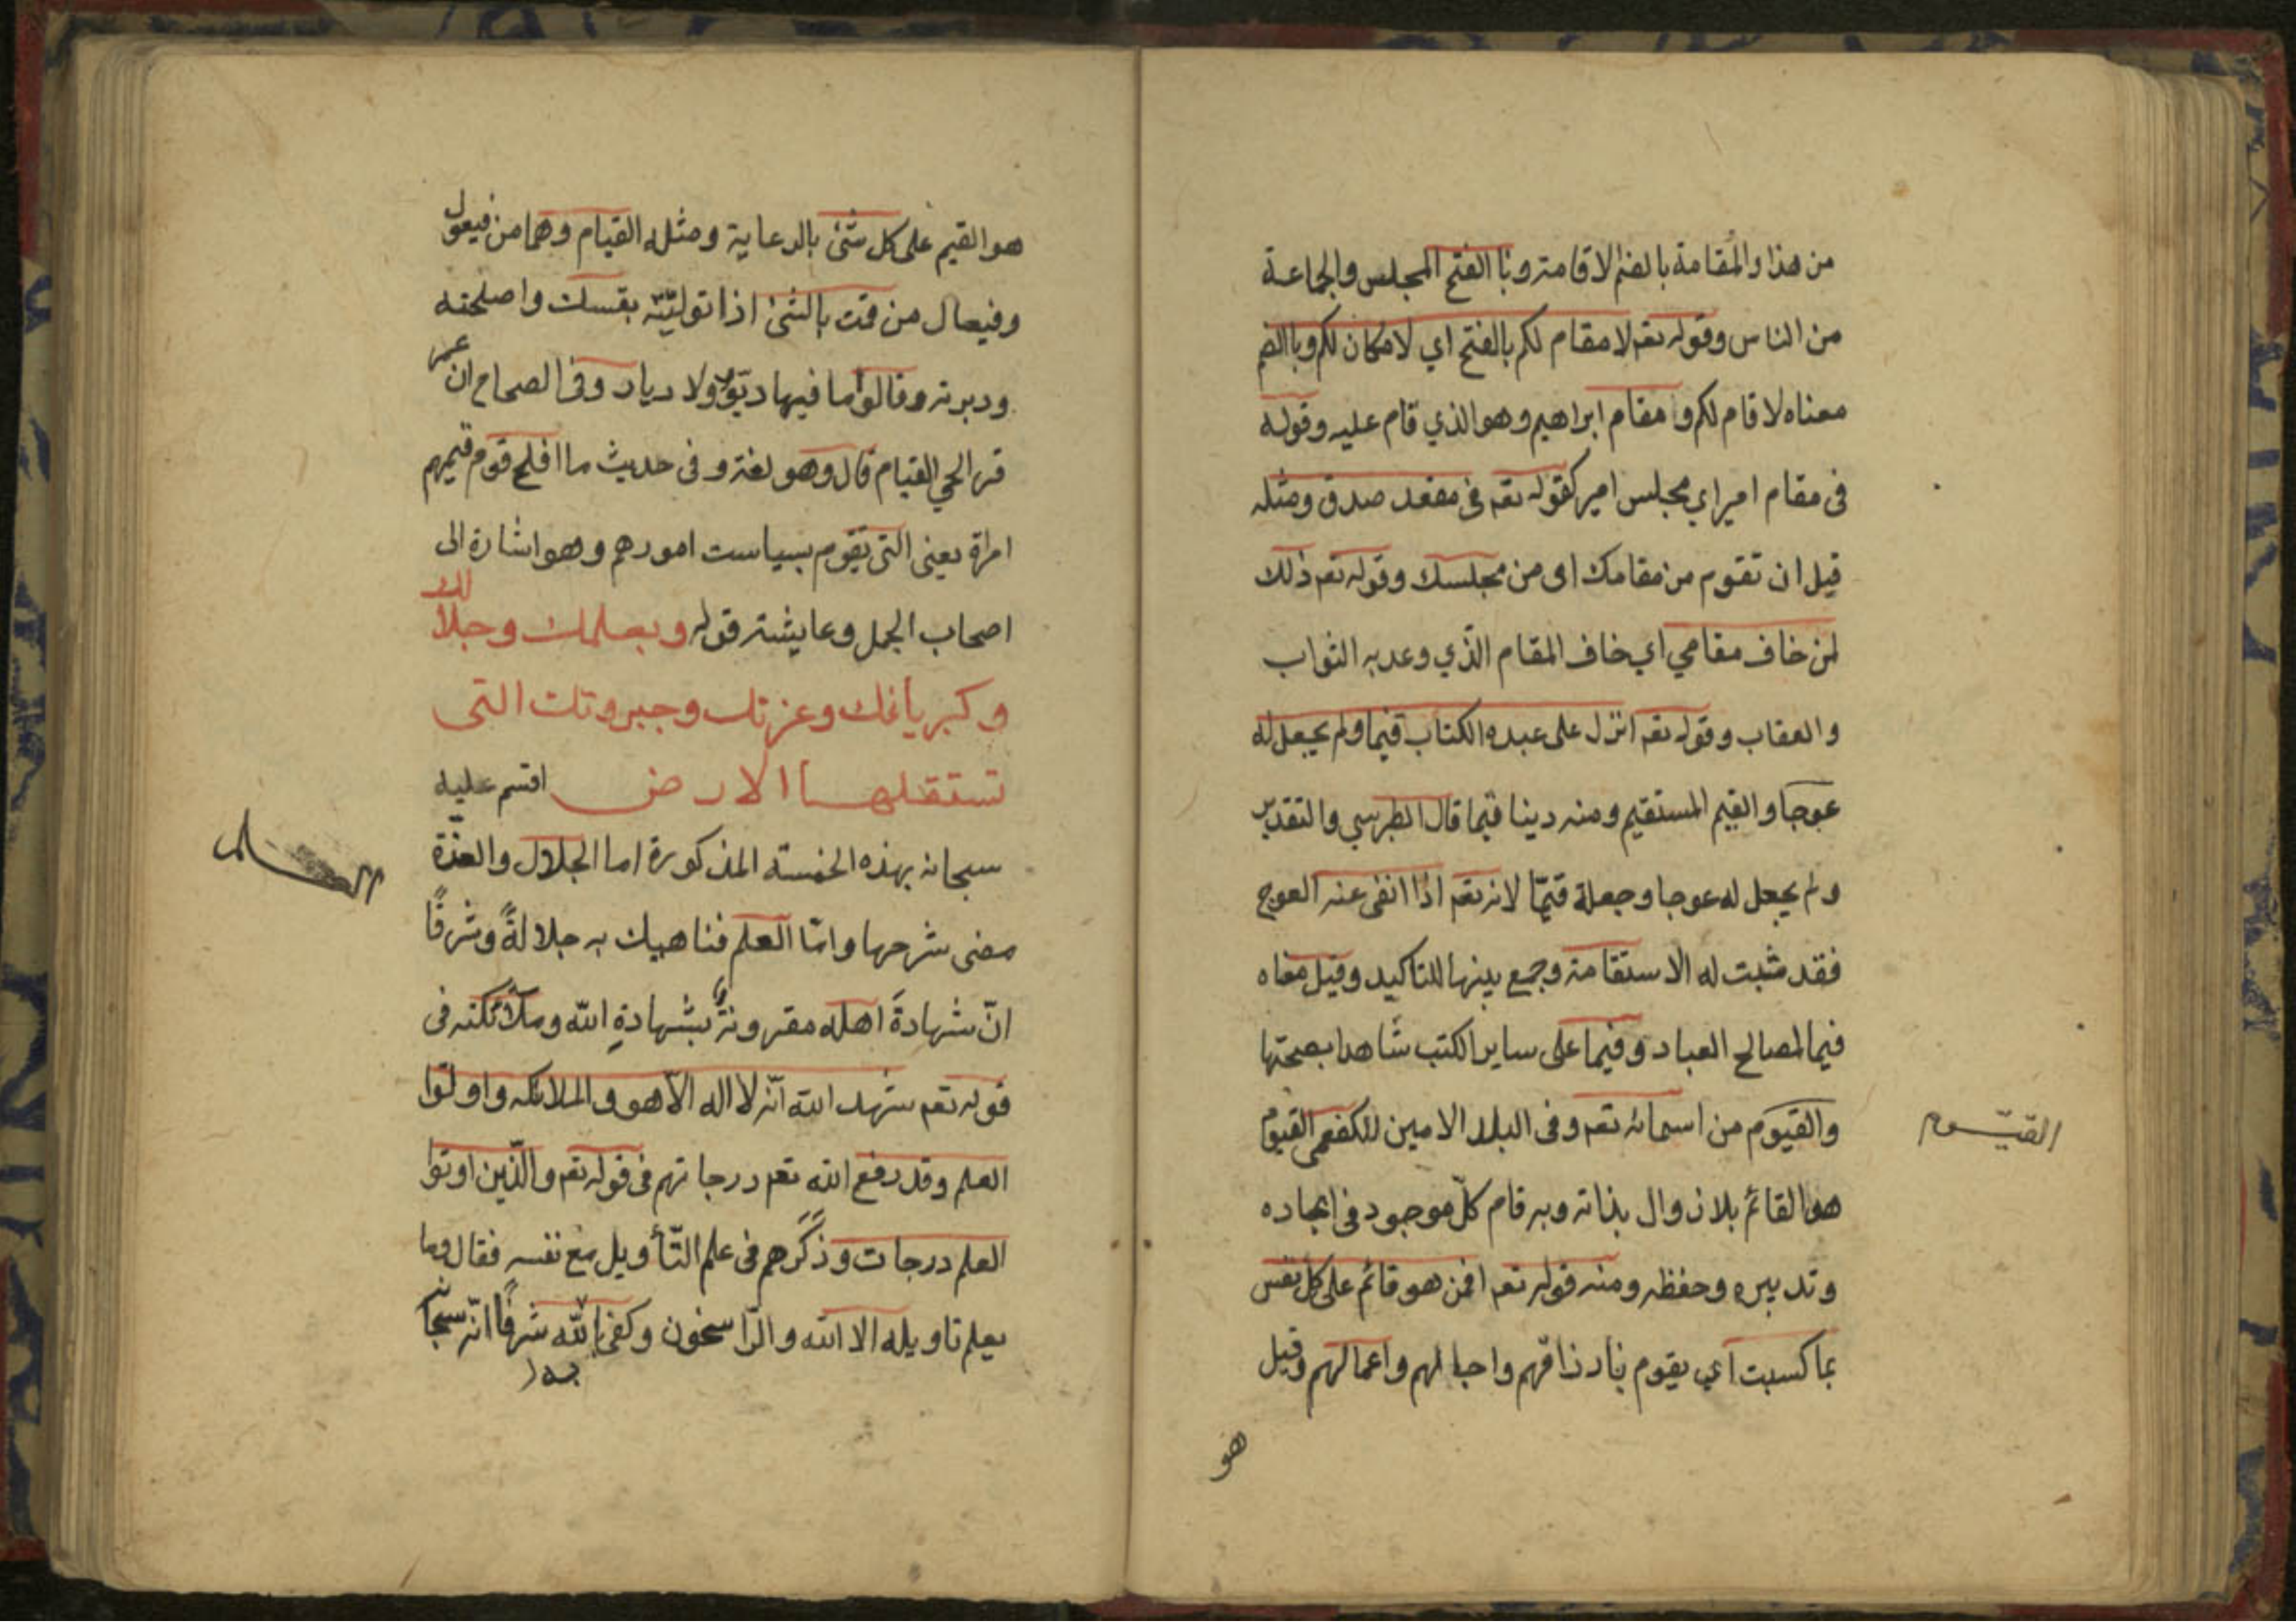 من هذا والمُقامة بالضم الاقامة وبا الفتح المجلس والجماعة
من الناس وقوله تعم لا مقام لكم بالفتح اي لا مكان لكم وبا الضم
معناه لا قام لكم و مقام ابراهيم وهو الذي قام عليه وقوله
فى مقام امير اي مجلس امير كقوله تعم فى مقعد صدق ومثله
قبل ان تقوم من مقامك اى من مجلسك وقوله تعم ذلك
لمن خاف مقامي اي خاف المقام الّذي وعد به الثواب
والعقاب وقوله تعم انزل على عبده الكتاب قيما ولم يجعل له
عوجا والقيم المستقيم ومنه دينا قيما قال الطبرسي والتقدير
ولم يجعل له عوجا وجعله قيمّا لانه تعم اذا انفى عنه العوج
فقد ثبت له الاستقامة وجمع بينها للتاكيد وقيل معناه
قيما لمصالح العباد وقيما على ساير الكتب شاهدا بصحتها
والقيوم من اسمائه تعم وفى البلد الامين للكفعمى القيوم
القيّوم
هو القائم بلا زوال بذاته وبه قام كلّ موجود فى ايجاده
وتدبيره وحفظه ومنه قوله تعم افمن هو قائم على كل نفس
بما كسبت اي يقوم بارزاقهم واجالهم واعمالهم وقيل
هو
هو القيم على كل شئ بالرعاية ومثله القيام وهما من فيعول
وفيعال من قمت بالشئ اذا توليّته بنفسك واصلحته
ودبرته وقالوا ما فيها ديّور ولا ديار وفى الصحاح ان عمر
قرء الحي القيام قال وهو لغة وفى حديث ما افلح قوم قيمهم
امراة يعني التى تقوم بسياست امورهم وهو اشارة الى
اصحاب الجمل وعايشة قوله وبعلمك وجلالك
وكبريائك وعزتك وجبروتك التى
تستقلها الارض اقسم عليه
سبحانه بهذه الخمسة المذكورة اما الجلال والعزّة
مضى شرحها وامّا العلم فناهيك به جلالةً وشرفًا
انّ شهادةَ اهله مقرونةٌ بشهادةِ الله وملائكته فى
قوله تعم شهد الله انّه لا اله الّا هو والملائكه واولوا
العلم وقد رفع الله تعم درجاتهم فى قوله تعم والّذين اوتوا
العلم درجات وذكرهم فى علم التّأويل مع نفسه فقال وما
يعلم تاويله الا الله والرّاسخون وكفى بالله شرفًا انّه سبحانه